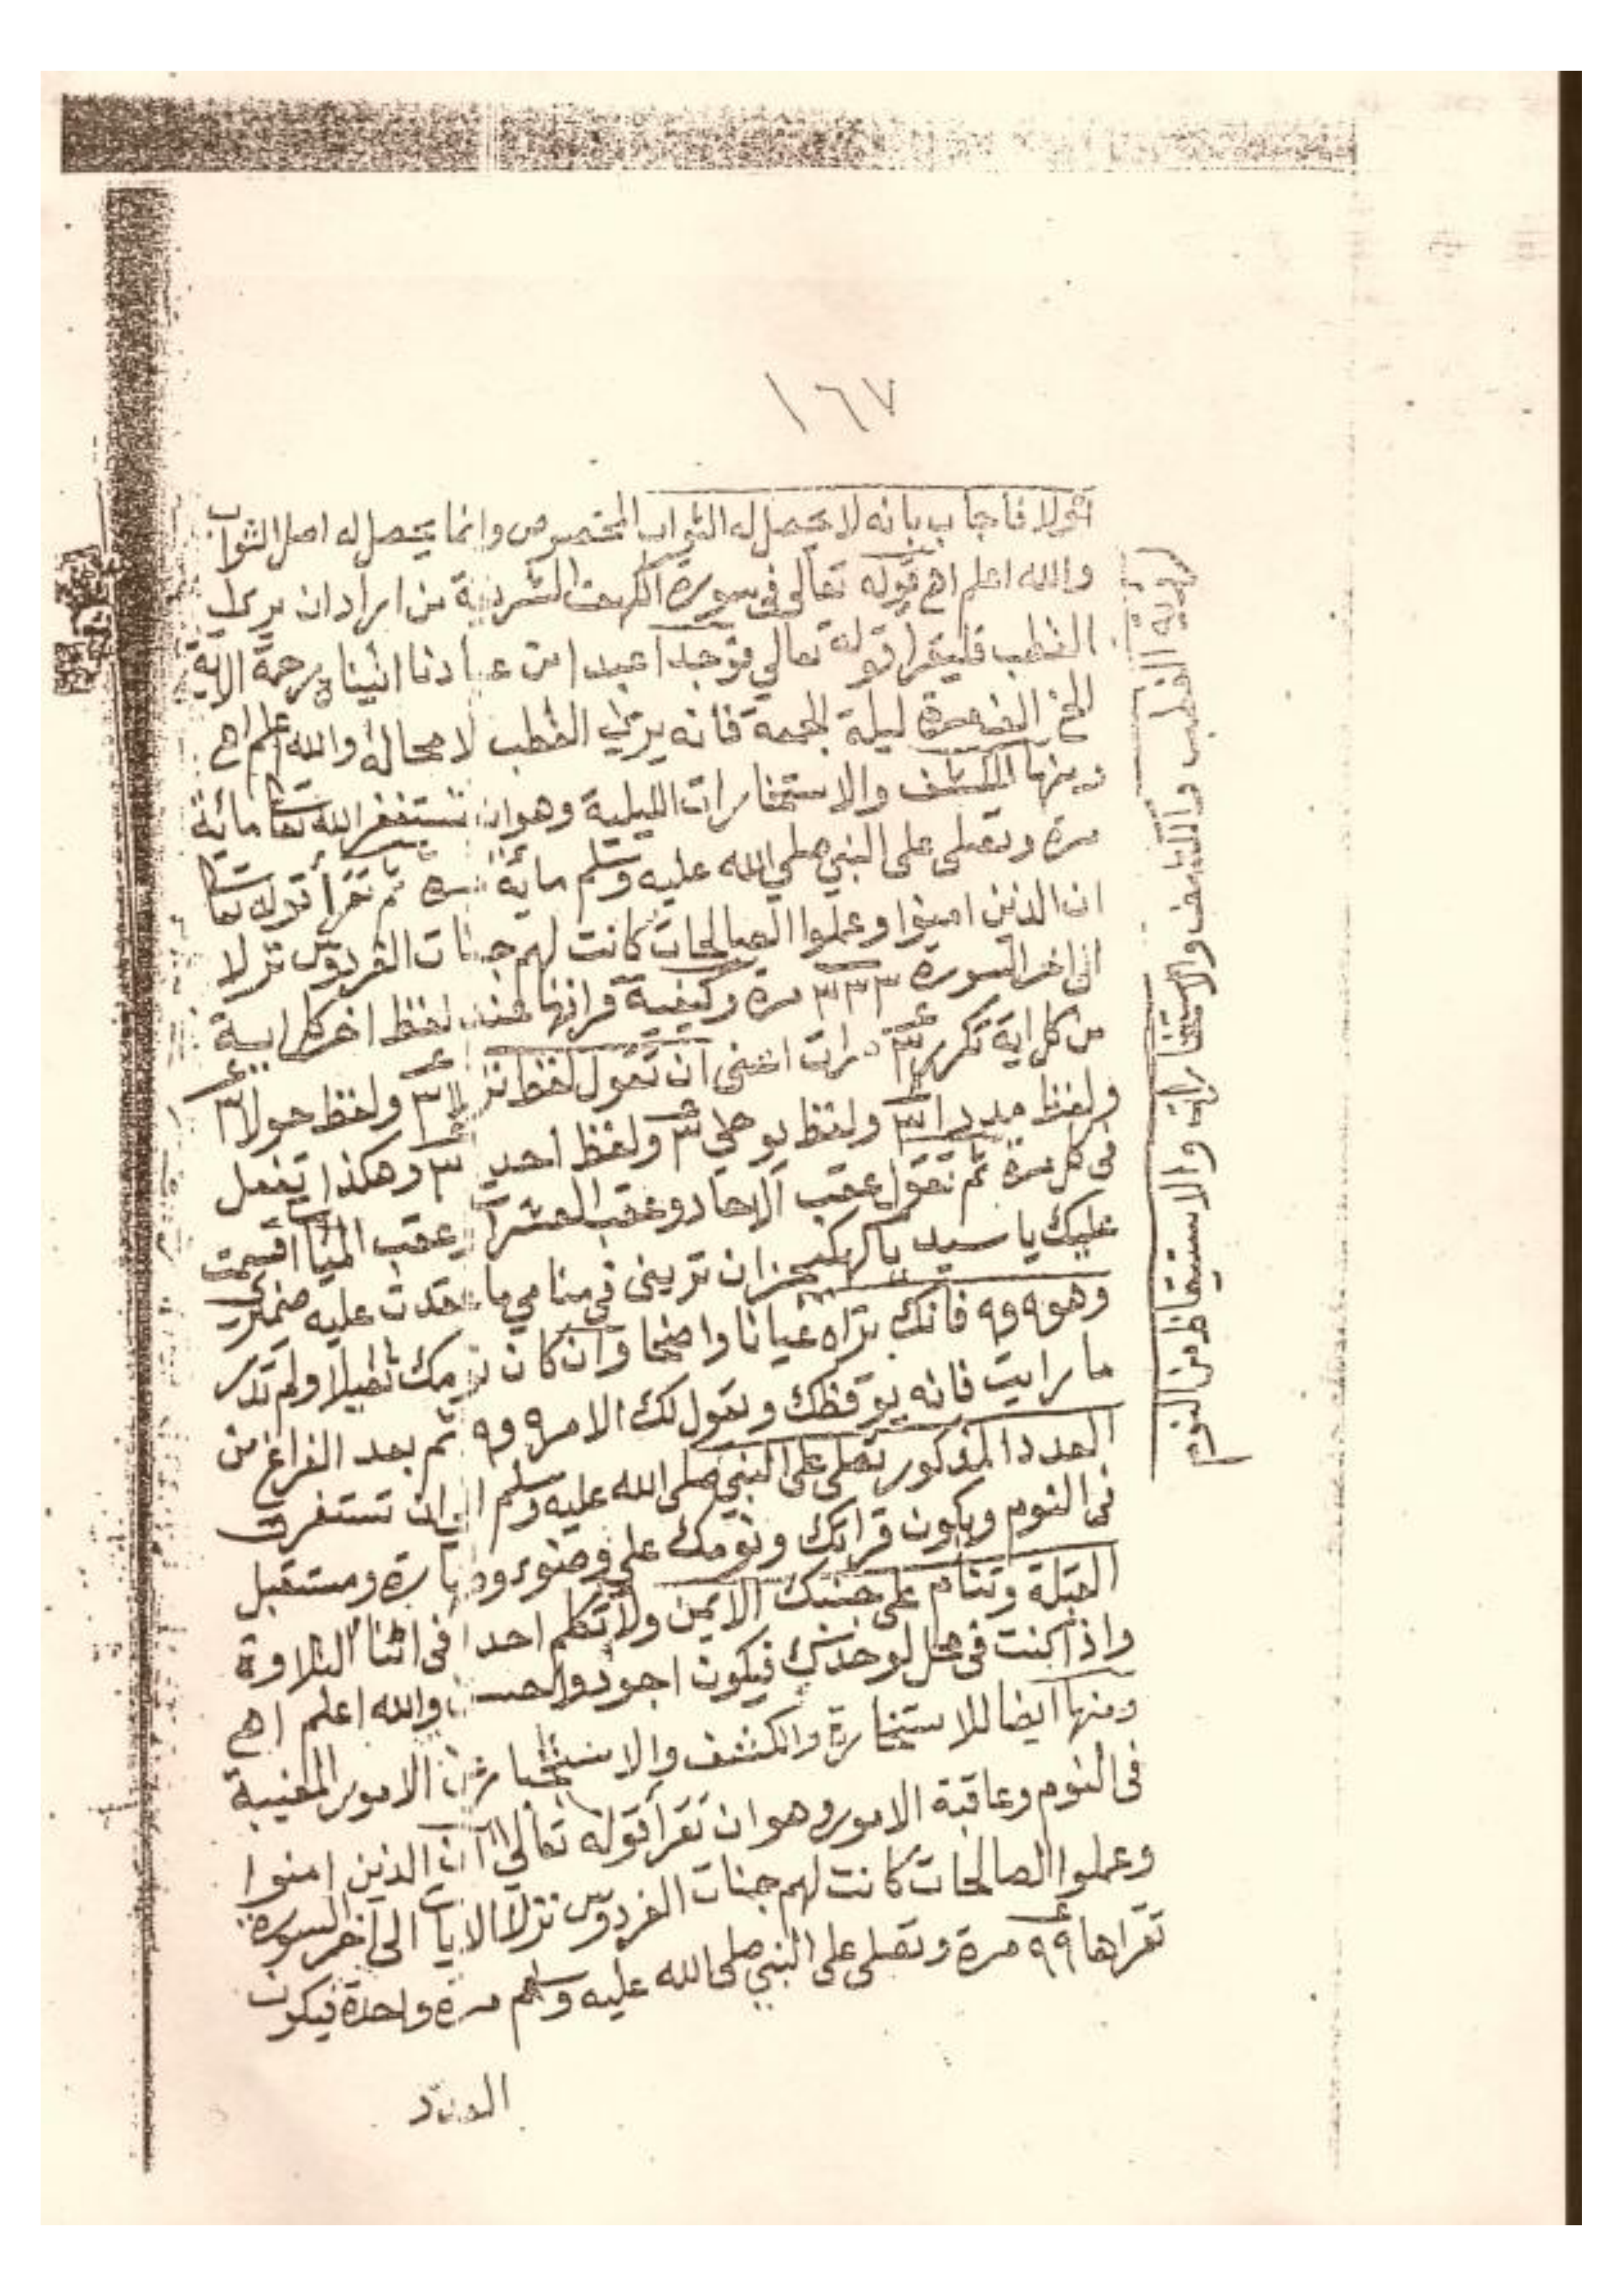 ١٦٧
أولا فاجاب بانه لا يحصل له الثواب المخصوص وانما يحصل له اصل الثواب
والله اعلم اهـ قوله تعالى فى سورة الكهف الشريفة من اراد ان يرى
القطب فليقرا قوله تعالي فوجدا عبدا من عبادنا اتيناه رحمة الاية
الخ مرة ليلة الجمعة فانه يرى القطب لا محالة والله اعلم اهـ
ومنها للكشف والاستخارات الليلية وهو ان تستغفر الله تعا مائة
مرة وتصلى على النبي صلي الله عليه وسلم مائة مرة ثم تقرأ قوله تعا
ان الذين امنوا وعملوا الصالحات كانت لهم جنات الفردوس نزلا
الى اخر السورة ٣٣٣ مرة وكيفية قرائتها عند لفظ اخر كل اية
من كل اية تكرر ٣ مرات اعنى ان تقول لفظ نزلا ٣ ولفظ حولا ٣
ولفظ مددا ٣ ولفظ يوحي ٣ ولفظ احد ٣ وهكذا تفعل
فى كل مرة ثم تقول عقب الاحاد وعقب العشرات وعقب الميات اقسمت
عليك يا سيد يا كهكيج ان ترينى فى منامي ما عقدت عليه ضميري
وهو ٩ و٩ فانك تراه عيانا واضحا وان كان نومك ثقيلا ولم تدر
ما رايت فانه يوقظك ويقول لك الامر ٩ و٩ ثم بعد الفراغ من
العدد المذكور تصلى على النبي صلى الله عليه وسلم الى ان تستغرق
فى النوم ويكون قراتك ونومك على وضوء وطهارة ومستقبل
القبلة وتنام على جنبك الايمن ولا تكلم احدا فى اثنا التلاوة
واذا كنت فى محل لوحدك فيكون اجود واحسن والله اعلم اهـ
ومنها ايضا للاستخارة والكشف والاستخبار عن الامور المغيبة
فى النوم وعاقبة الامور وهو ان تقرأ قوله تعالي ان الذين امنوا
وعملوا الصالحات كانت لهم جنات الفردوس نزلا الايات الى اخر السورة
تقراها ٩٩ مرة وتصلى على النبي صلى الله عليه وسلم مرة واحدة فيكون
العدد
رؤية القطب والكشف والاستخارات والاستيقاظ من النوم